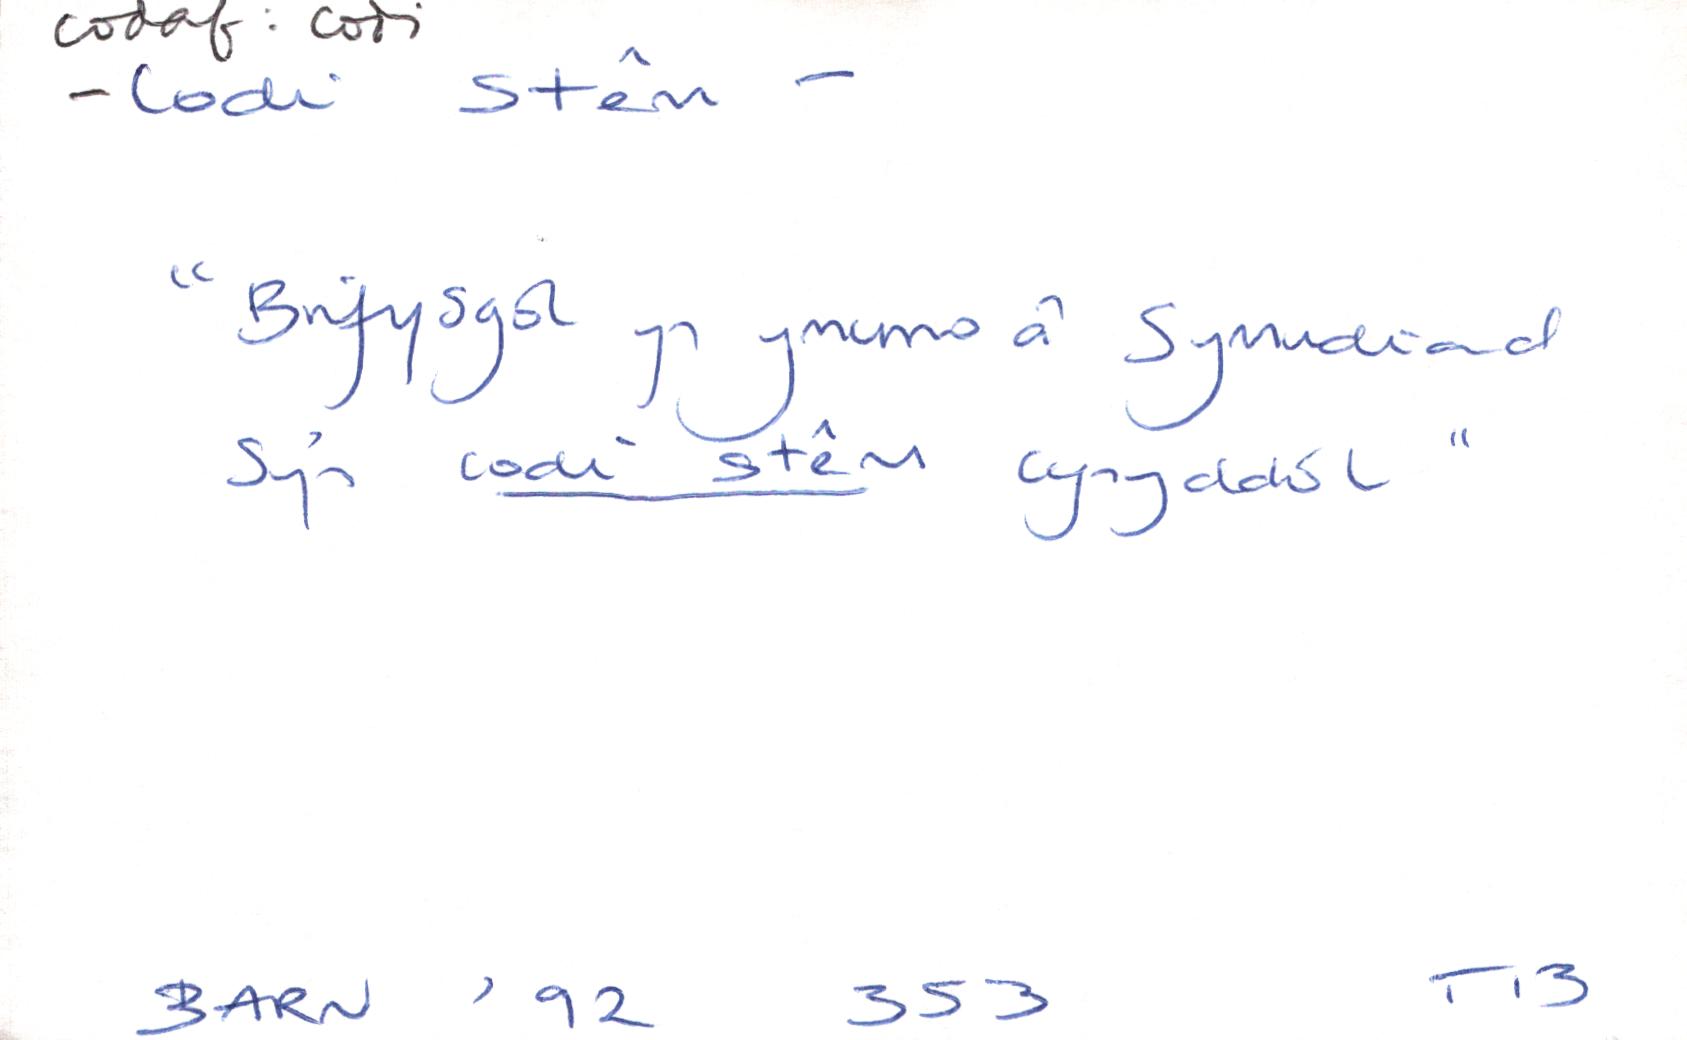 codaf: codi
- Codi stêm -
"Brifysgol yn ymuno â Symudiad
Sy'n codi stêm cynyddol"
BARN '92 353 T13